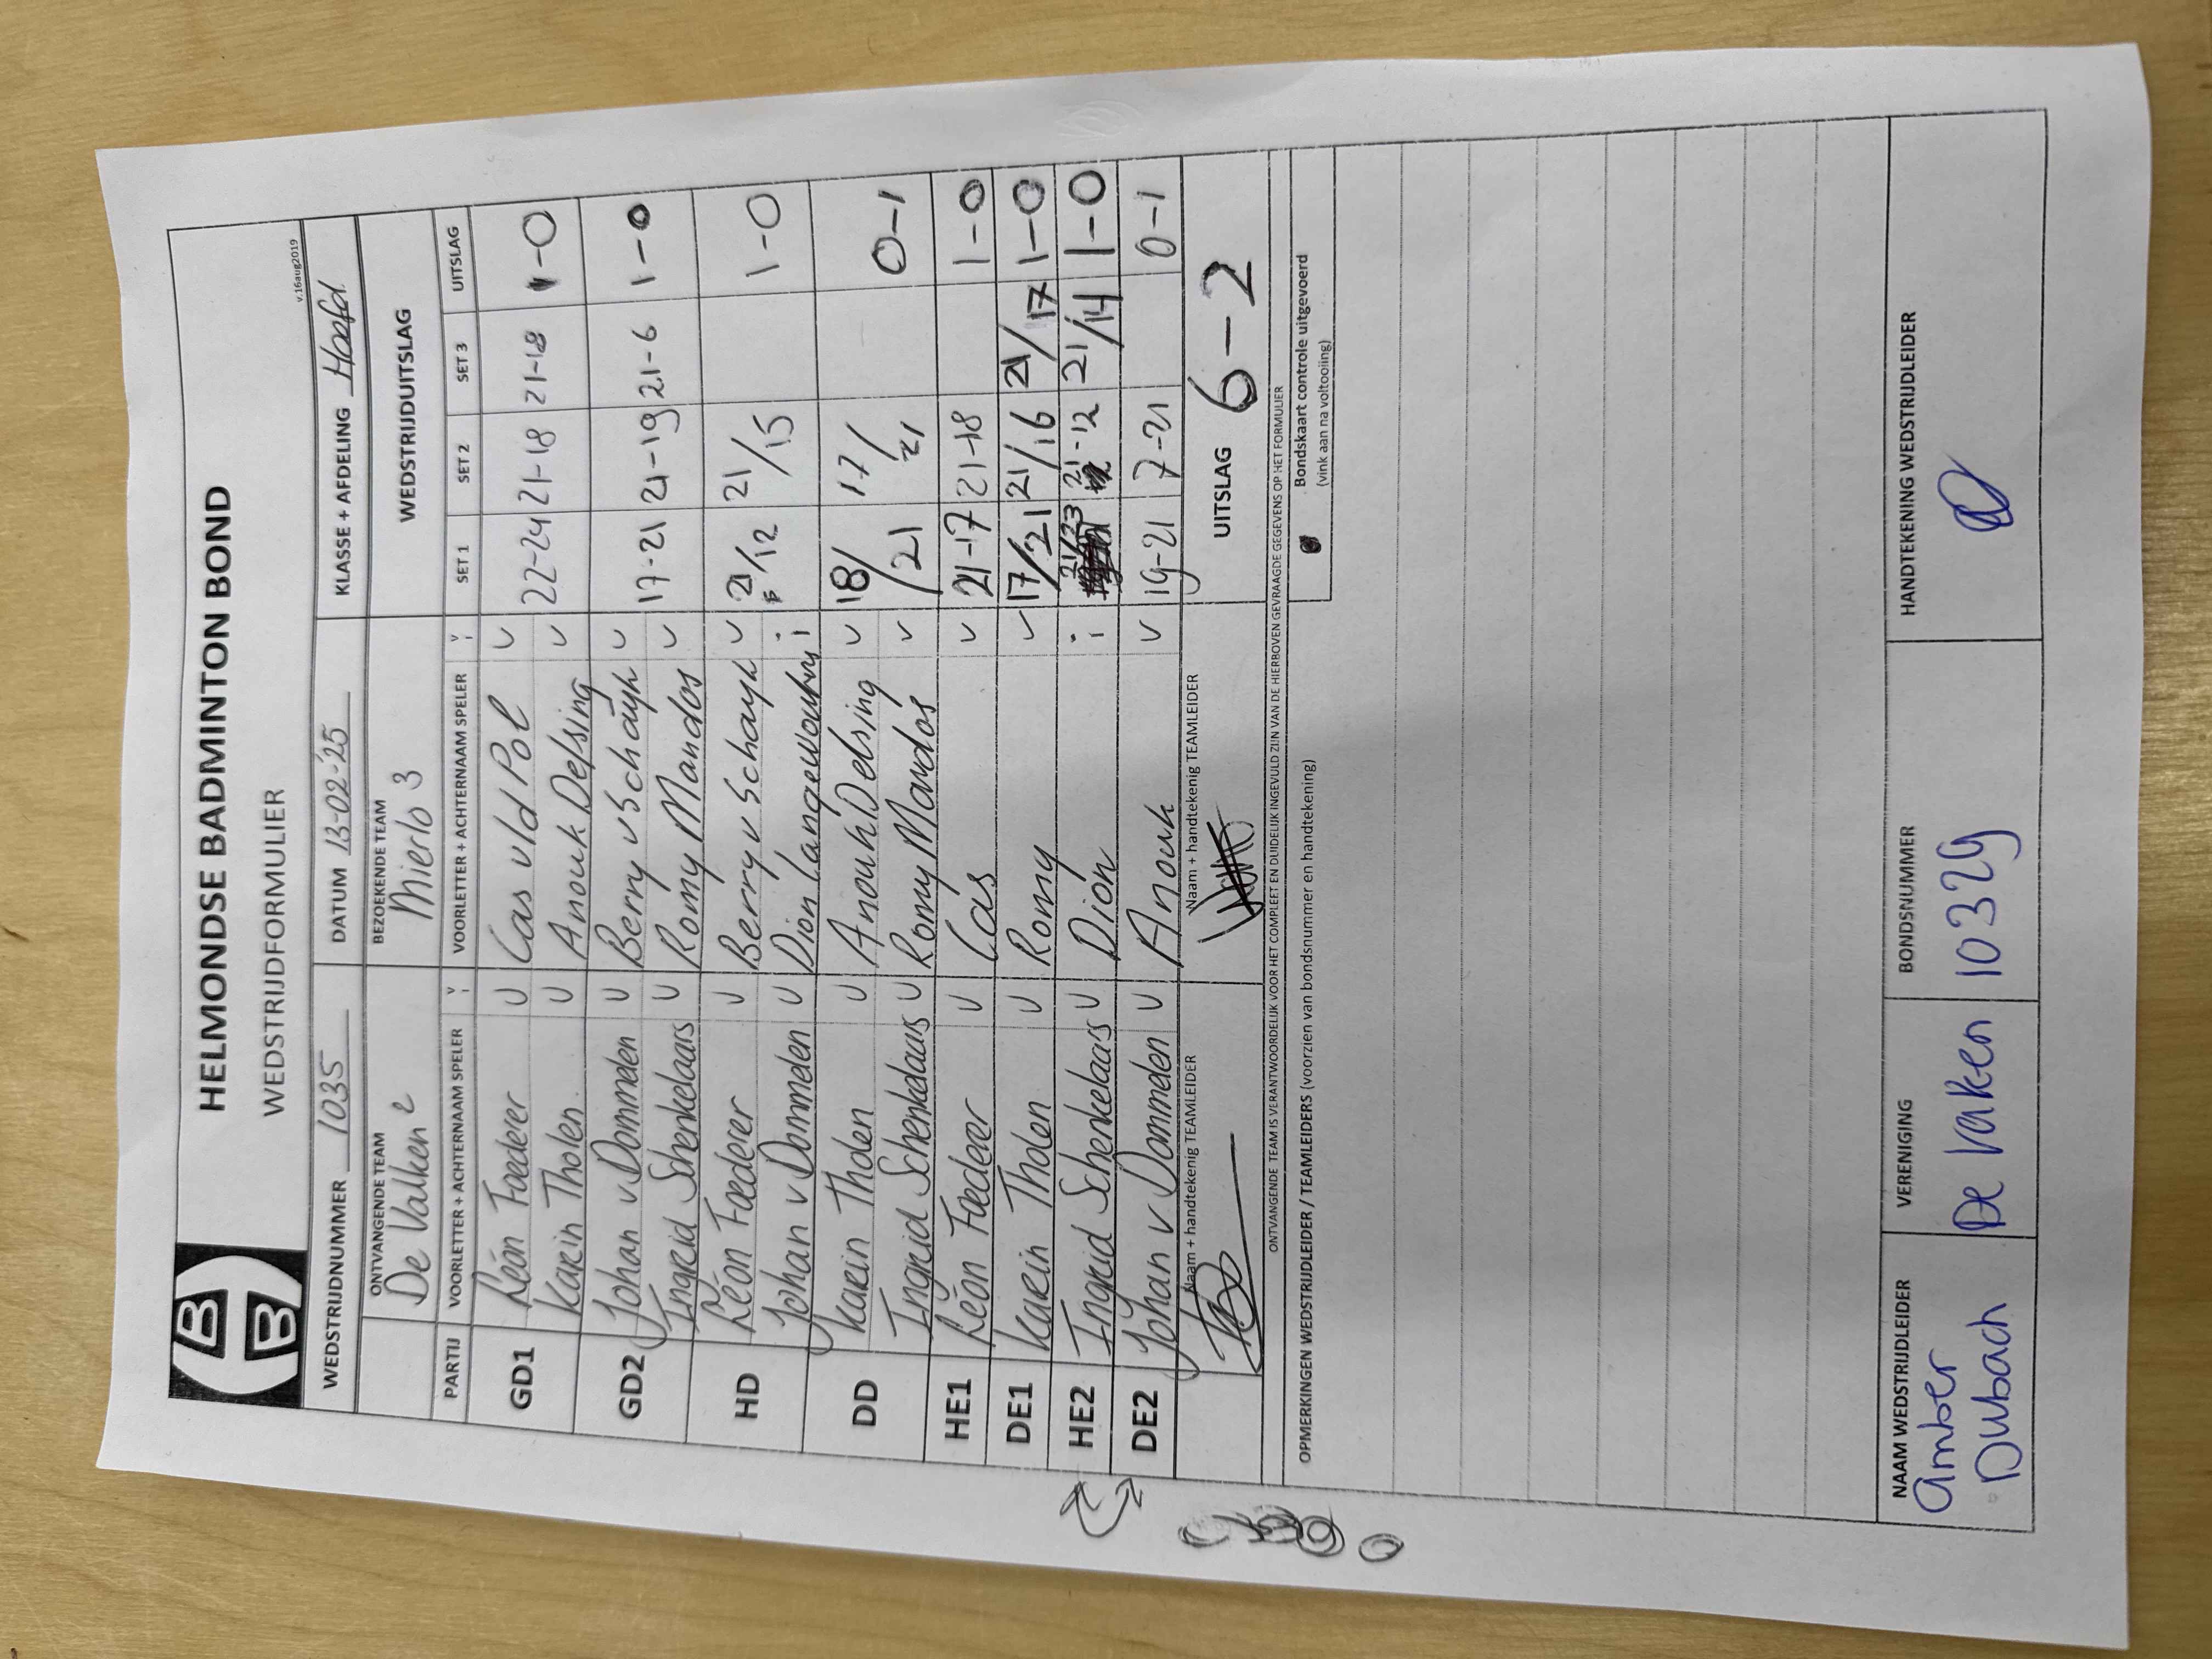 HELMONDSE BADMINTON BOND
WEDSTRIJDFORMULIER
v.16aug2019
WEDSTRIJDNUMMER 1035 DATUM 13-02-25 KLASSE + AFDELING Hoofd
ONTVANGENDE TEAM BEZOEKENDE TEAM WEDSTRIJDUITSLAG
De Valken 2 Mierlo 3
PARTIJ VOORLETTER + ACHTERNAAM SPELER v i VOORLETTER + ACHTERNAAM SPELER v i SET 1 SET 2 SET 3 UITSLAG
GD1 Léon Foederer v Cas vld Pol v 22-24 21-18 21-18 1-0
Karin Tholen v Anouk Delsing v
GD2 Johan v Dommelen v Berry v Schayk v 17-21 21-19 21-6 1-0
Ingrid Schenkelaars v Romy Mandos v
HD Léon Foederer v Berry v Schayk v 21/12 21/15 1-0
Johan v Dommelen v Dion Langewouters i
DD Karin Tholen v Anouk Delsing v 18/21 17/21 0-1
Ingrid Schenkelaars v Romy Mandos v
HE1 Léon Foederer v Cas v 21-17 21-18 1-0
DE1 Karin Tholen v Romy v 17/21 21/16 21/17 1-0
HE2 Ingrid Schenkelaars v Dion i 21/23 21-12 21/14 1-0
DE2 Johan v Dommelen v Anouk v 19-21 7-21 0-1
Naam + handtekenig TEAMLEIDER Naam + handtekenig TEAMLEIDER UITSLAG 6-2
ONTVANGENDE TEAM IS VERANTWOORDELIJK VOOR HET COMPLEET EN DUIDELIJK INGEVULD ZIJN VAN DE HIERBOVEN GEVRAAGDE GEGEVENS OP HET FORMULIER
OPMERKINGEN WEDSTRIJDLEIDER / TEAMLEIDERS (voorzien van bondsnummer en handtekening)
Bondskaart controle uitgevoerd
(vink aan na voltooiing)
NAAM WEDSTRIJDLEIDER VERENIGING BONDSNUMMER HANDTEKENING WEDSTRIJDLEIDER
Amber De Valken 10329
Dubach